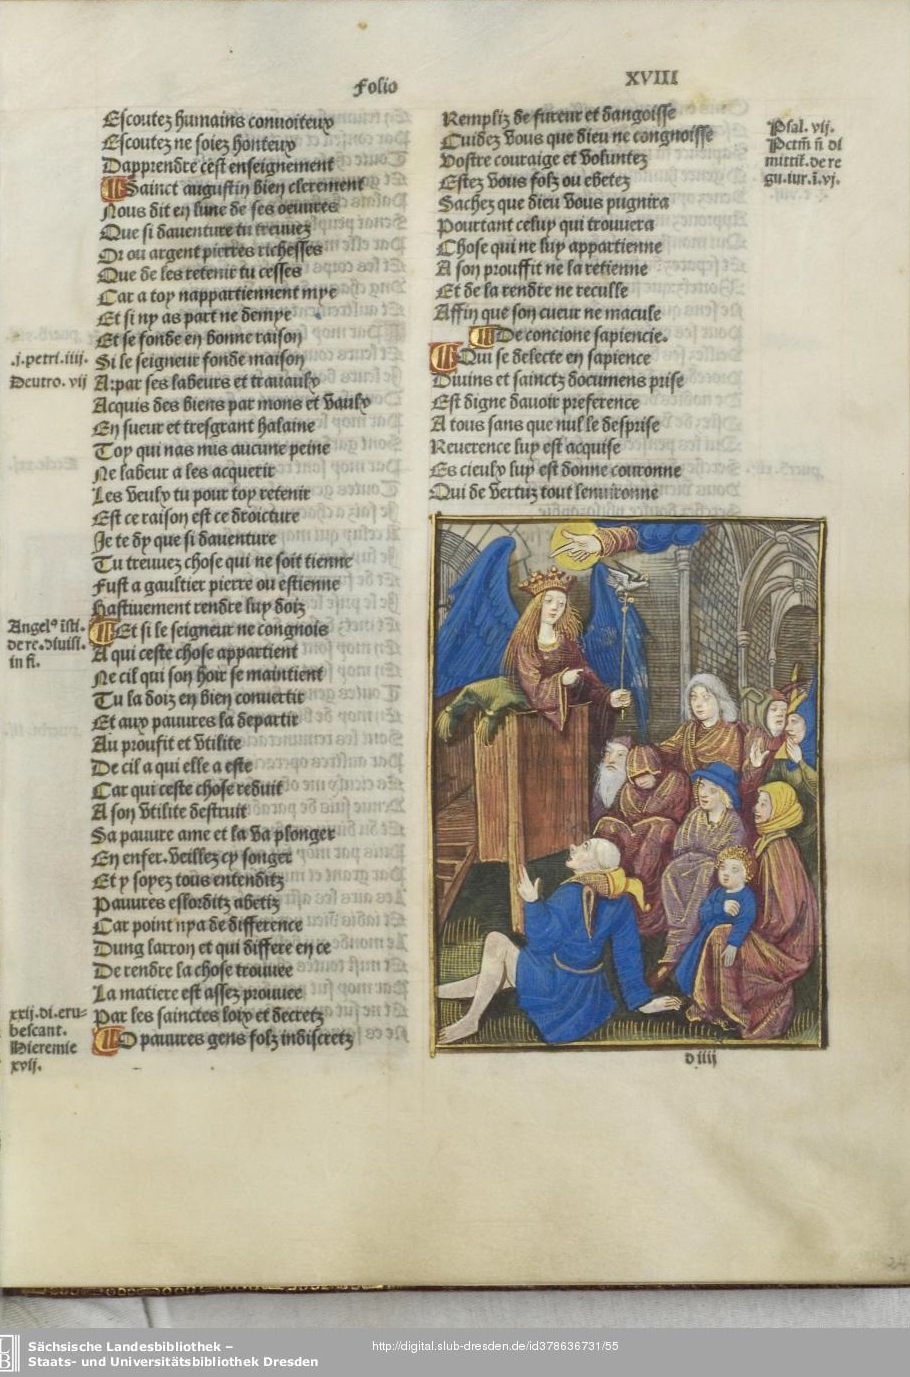 Folio
XVIII
Escoutez humains conuoiteux
Escoutez ne soiez honteux
Dapprendre cest enseignement
Sainct augustin bien clerement
Nous dit en lune de ses oeuures
Que si dauenture tu treuuez
Or ou argent pierres richesses
Que de les retenir tu cesses
Car a toy nappartiennent mye
Et si ny as part ne demye
Et se fonde en bonne raison
.j.petri.iiij.
Si le seigneur fonde maison
Deutro. vij
A: par ses labeurs et trauaulx
Acquis des biens par mons et vaulx
En sueur et tresgrant halaine
Toy qui nas mis aucune peine
Ne labeur a les acquerir
Les veulx tu pour toy retenir
Est ce raison est ce droicture
Je te dy que si dauenture
Tu treuuez chose qui ne soit tienne
Fust a gaultier pierre ou estienne
Hastiuement rendre luy doiz
Angelꝰ ĩsti.
de re. diuisi.
in fi.
Et si le seigneur ne congnois
A qui ceste chose appartient
Ne cil qui son hoir se maintient
Tu la doiz en bien conuertir
Et aux pauures la departir
Au proufit et vtilite
De cil a qui elle a este
Car qui ceste chose reduit
A son vtilite destruit
Sa pauure ame et la va plonger
En enfer. veillez cy songer
Et y soyez tous entenditz
Pauures essorditz abetiz
Car point nya de difference
Dung larron et qui differe en ce
De rendre la chose trouuee
La matiere est assez prouuee
xxij.di.eru-
bescant.
Hieremie
xvij.
Par les sainctes loix et decretz
O pauures gens folz indiscretz
Rempliz de fureur et dangoisse
Cuidez vous que dieu ne congnoisse
Vostre couraige et voluntez
Estez vous folz ou ebetez
Psal. vij.
Pctm̃ ñ di
mittit̃. de re
gu. iur. ĩ. vj.
Sachez que dieu vous pugnira
Pourtant celuy qui trouuera
Chose qui ne luy appartienne
A son prouffit ne la retienne
Et de la rendre ne reculle
Affin que son cueur ne macule
De concione sapiencie.
Qui se delecte en sapience
Diuins et sainctz documens prise
Est digne dauoir preference
A tous sans que nul le desprise
Reuerence luy est acquise
Es cieulx luy est donne couronne
Qui de vertuz tout lenuironne
d iiij
24
Sächsische Landesbibliothek –
Staats- und Universitätsbibliothek Dresden
http://digital.slub-dresden.de/id378636731/55